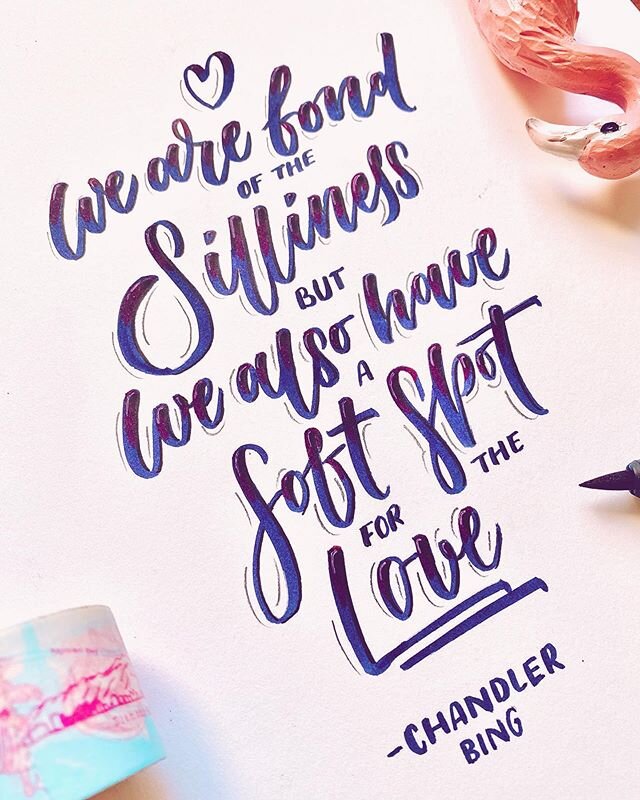 We are fond
OF THE
Silliness
BUT
We also have
A
Soft Spot
FOR THE
Love
-CHANDLER
BING